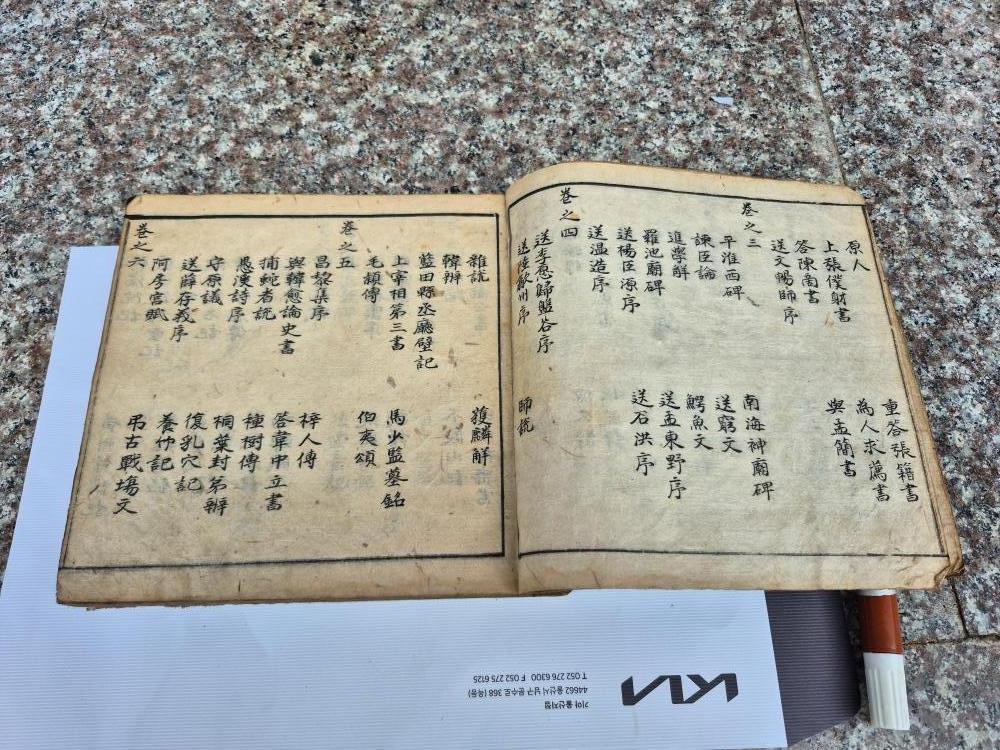 原人 重答張籍書
上張僕射書 為人求薦書
答陳商書 與孟簡書
送文暢師序
卷之三
平淮西碑 南海神廟碑
諫臣論 送窮文
進學解 鰐魚文
羅池廟碑 送孟東野序
送楊巨源序 送石洪序
送溫造序
卷之四
送李愿歸盤谷序
送陸歙州序 師說
雜說 獲麟解
諱辨
藍田縣丞廳壁記
上宰相第三書 馬少監墓銘
毛穎傳 伯夷頌
卷之五
昌黎集序 梓人傳
與韓愈論史書 答韋中立書
捕蛇者說 種樹傳
愚溪詩序 桐葉封弟辨
守原議 復乳穴記
送薛存義序 養竹記
阿房宮賦 弔古戰場文
卷之六
KIA
기아 울산지점
44662 울산시 남구 문수로 368 (옥동)
T 052 276 6300 F 052 275 6125